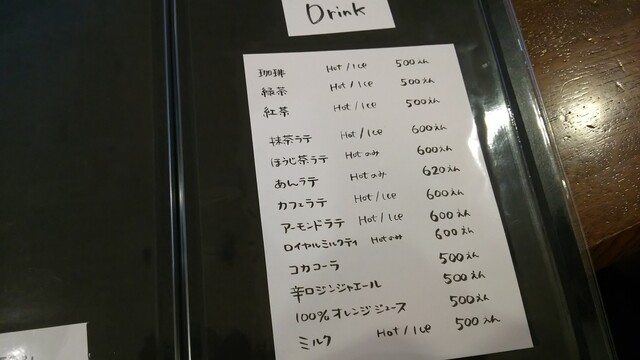 Drink
珈琲 Hot/Ice 500えん
緑茶 Hot/Ice 500えん
紅茶 Hot/Ice 500えん
抹茶ラテ Hot/Ice 600えん
ほうじ茶ラテ Hotのみ 600えん
あんラテ Hotのみ 620えん
カフェラテ Hot/Ice 600えん
アーモンドラテ Hot/Ice 600えん
ロイヤルミルクティ Hotのみ 600えん
コカコーラ 500えん
辛口ジンジャエール 500えん
100%オレンジジュース 500えん
ミルク Hot/Ice 500えん